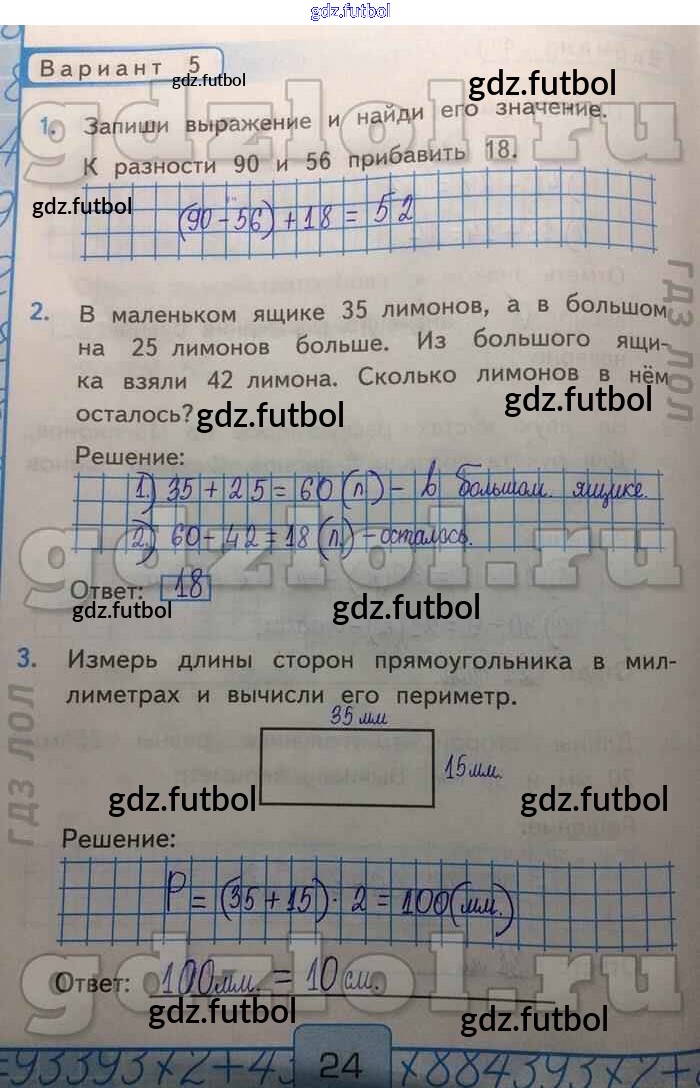 gdz.futbol
Вариант 5
gdz.futbol
gdz.futbol
gdzlol.ru
1. Запиши выражение и найди его значение.
К разности 90 и 56 прибавить 18.
gdz.futbol
(90-56)+18=52
ГДЗ ЛОЛ
2. В маленьком ящике 35 лимонов, а в большом
на 25 лимонов больше. Из большого ящи-
ка взяли 42 лимона. Сколько лимонов в нём
осталось?
gdz.futbol
gdz.futbol
Решение:
1.) 35+25=60(л.)- в большом. ящике.
gdzlol.ru
2.) 60-42=18(л.)-осталось.
Ответ: 18
gdz.futbol
gdz.futbol
3. Измерь длины сторон прямоугольника в мил-
лиметрах и вычисли его периметр.
35 мм
15мм.
ГДЗ ЛОЛ
gdz.futbol
gdz.futbol
Решение:
P=(35+15)·2=100(мм.)
gdzlol.ru
Ответ: 100мм.=10см.
gdz.futbol
gdz.futbol
=93393×2+43
24
×884393×2+